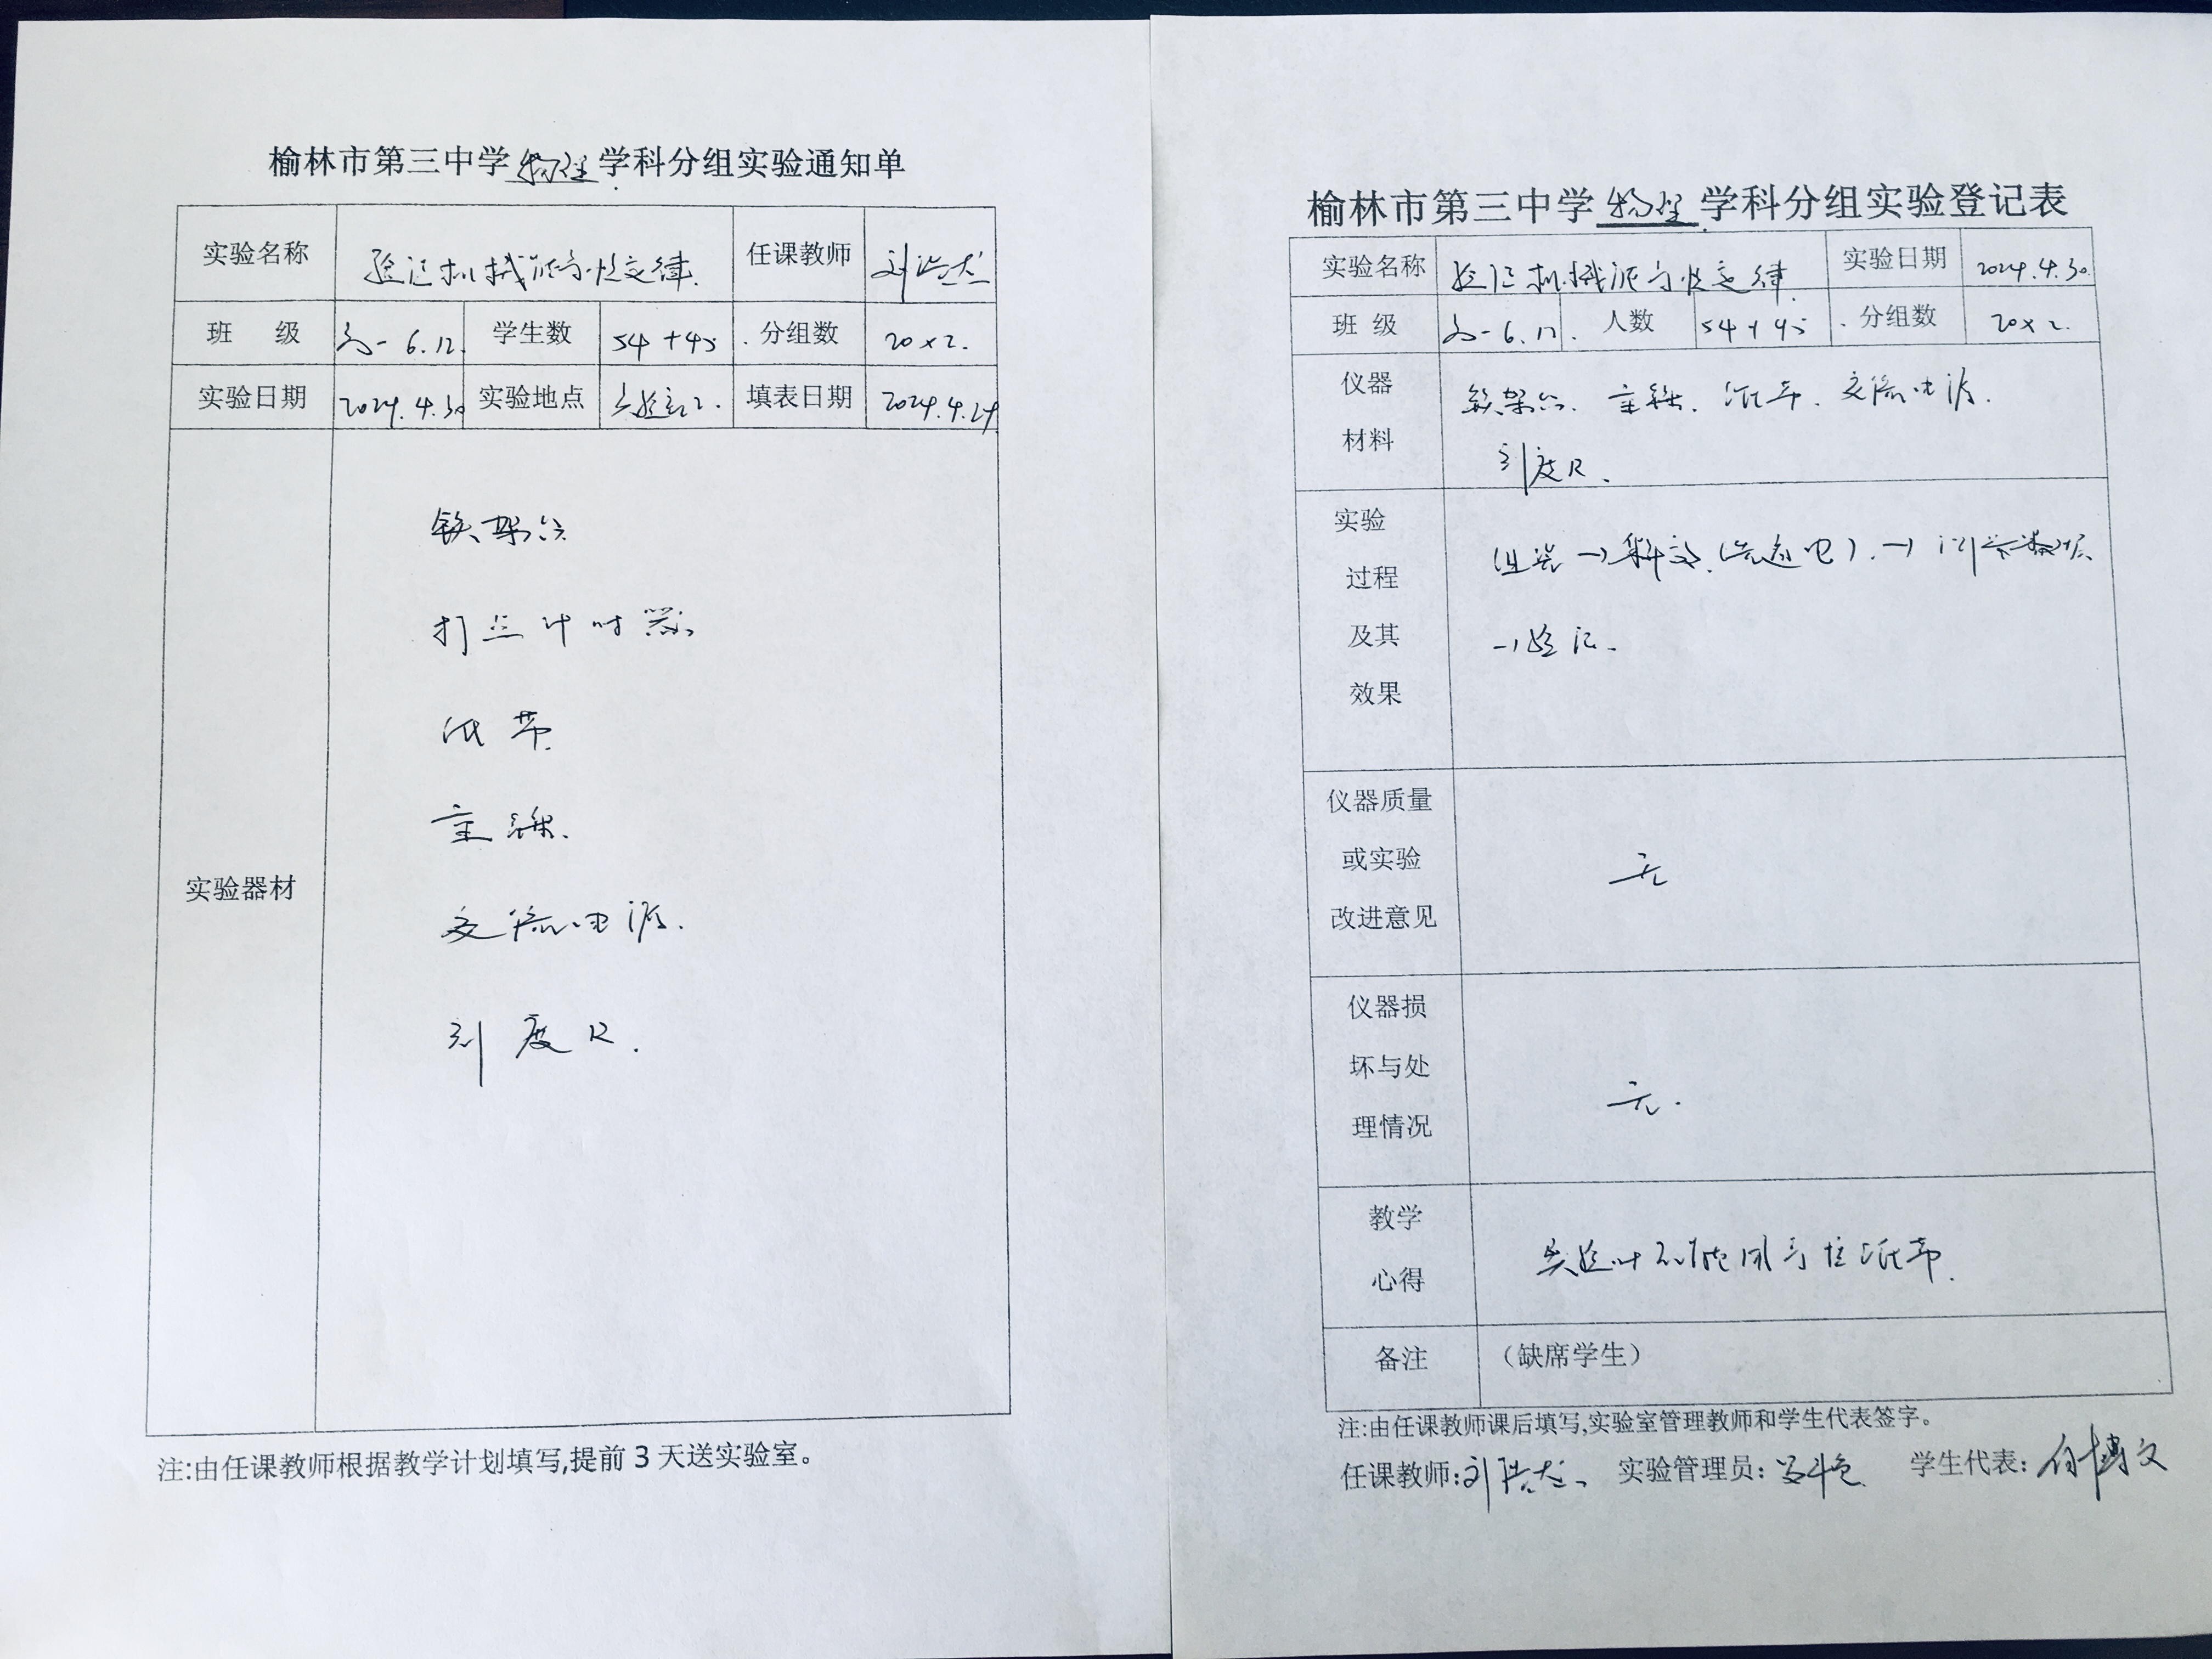 榆林市第三中学物理学科分组实验通知单
实验名称 验证机械能守恒定律. 任课教师
班 级 高一 6.12. 学生数 54+45 分组数 20×2.
实验日期 2024.4.30 实验地点 实验室2. 填表日期 2024.4.24
实验器材
铁架台
打点计时器
纸带
重锤.
交流电源.
刻度尺.
注:由任课教师根据教学计划填写,提前3天送实验室。
榆林市第三中学物理学科分组实验登记表
实验名称 验证机械能守恒定律 实验日期 2024.4.30.
班 级 高一 6.12. 人数 54+45 分组数 20×2.
仪器
材料
铁架台. 重锤. 纸带. 交流电源.
刻度尺.
实验
过程
及其
效果
组装→释放(先通电).→计算数据
→验证.
仪器质量
或实验
改进意见
无
仪器损
坏与处
理情况
无.
教学
心得
实验时不能用手拉纸带.
备注 (缺席学生)
注:由任课教师课后填写,实验室管理教师和学生代表签字。
任课教师: 实验管理员: 学生代表: